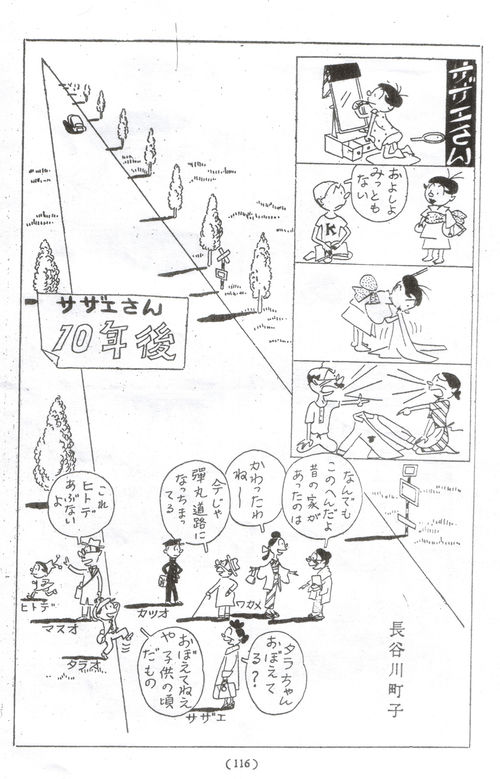 サザエさん
およしよ
みっとも
ない
K
サザエさん
10年後
なんでも
このへんだよ
昔の家が
あったのは
かわったわ
ねー
今じゃ
彈丸道路に
なっちまっ
てる
これ
ヒトデ
あぶない
よ
ワカメ
カツオ
ヒトデ
マスオ
タラオ
タラちゃん
おぼえて
る?
おぼえてねえ
や子供の頃
だもの
サザエ
長谷川町子
(116)